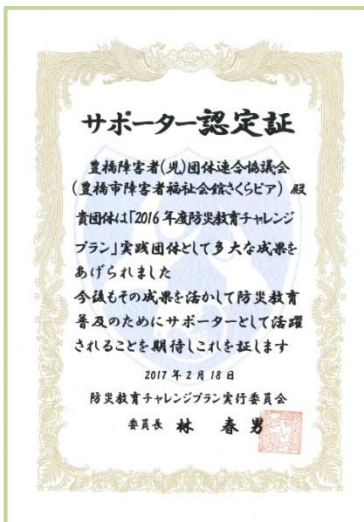 サポーター認定証
豊橋障害者(児)団体連合協議会
(豊橋市障害者福祉会館さくらピア) 殿
貴団体は「2016年度防災教育チャレンジ
プラン」実践団体として多大な成果を
あげられました
今後もその成果を活かして防災教育
普及のためにサポーターとして活躍
されることを期待しこれを証します
2017年2月18日
防災教育チャレンジプラン実行委員会
委員長 林 春男